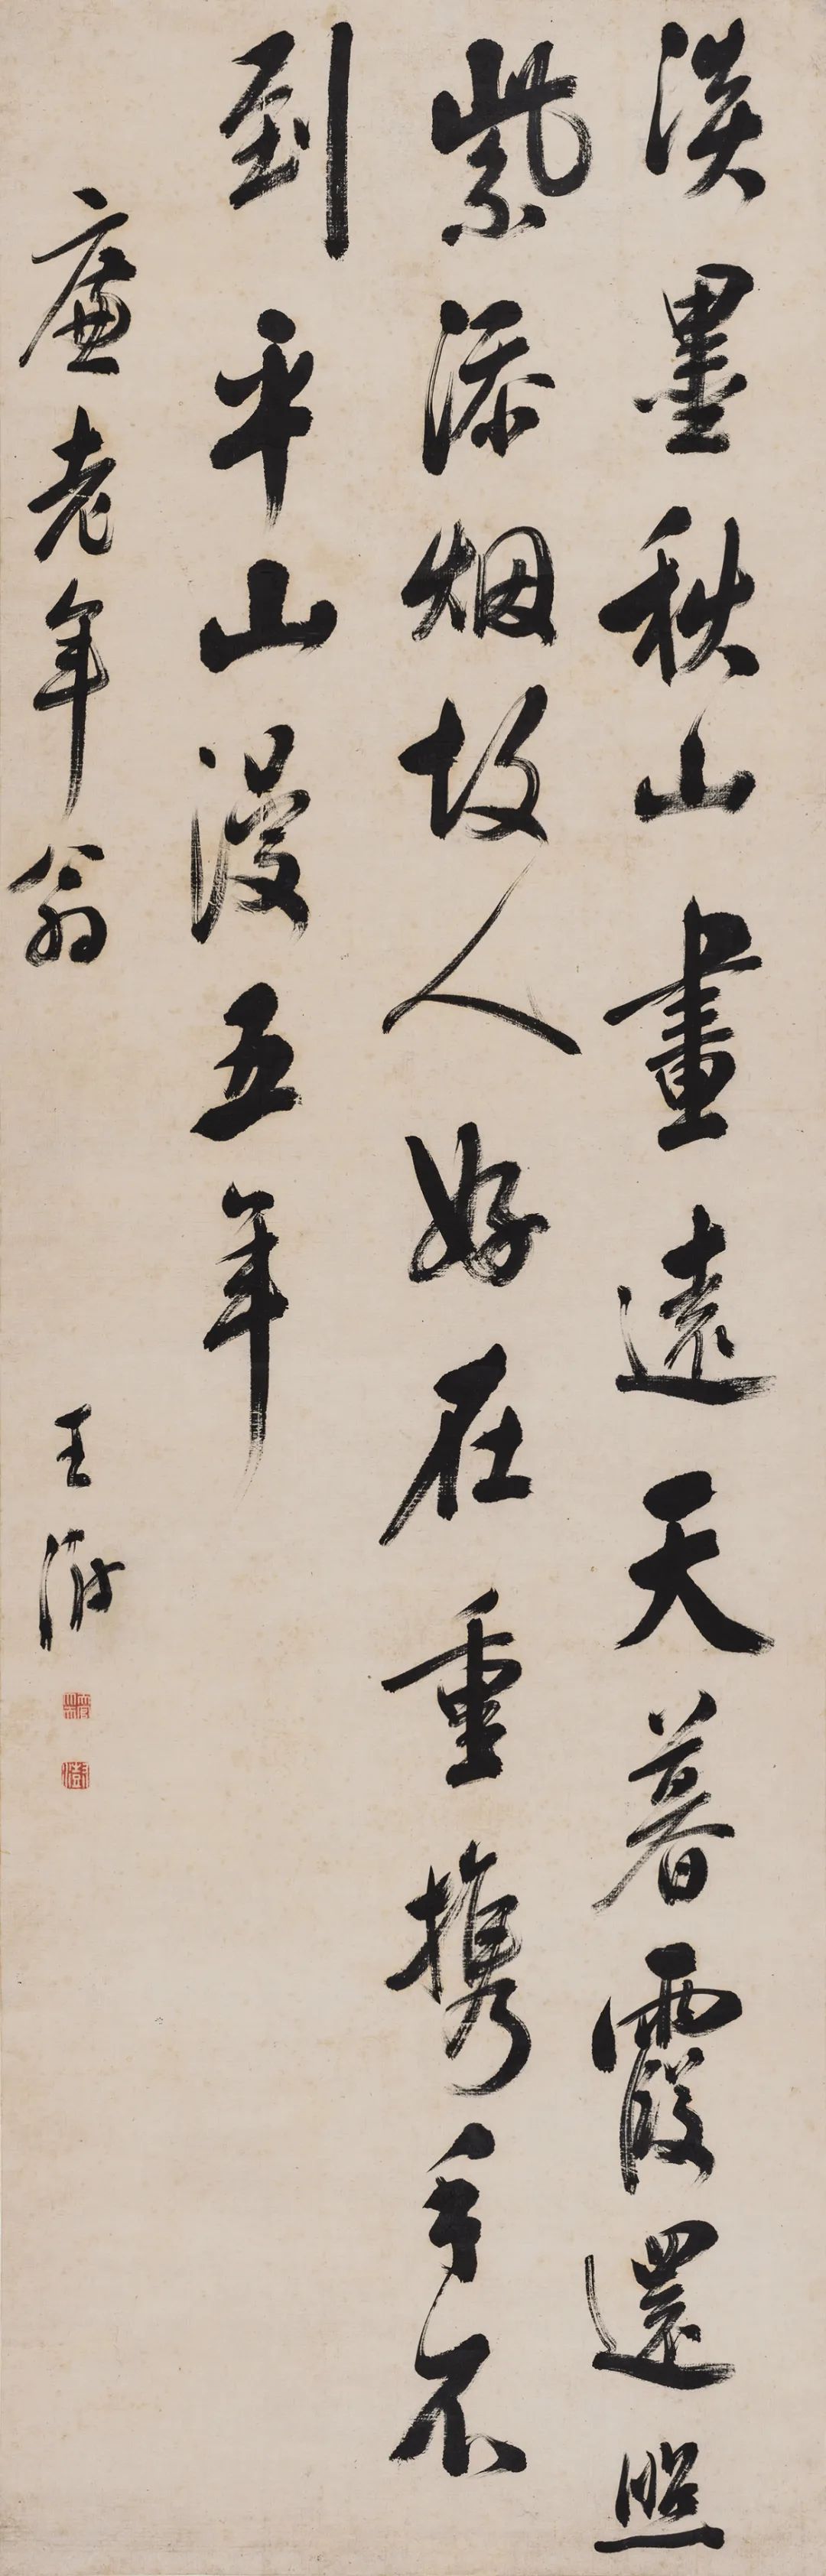 淡墨秋山畫遠天暮霞還照
紫添烟故人好在重携手不
到平山漫五年
廉老年翁
王澍